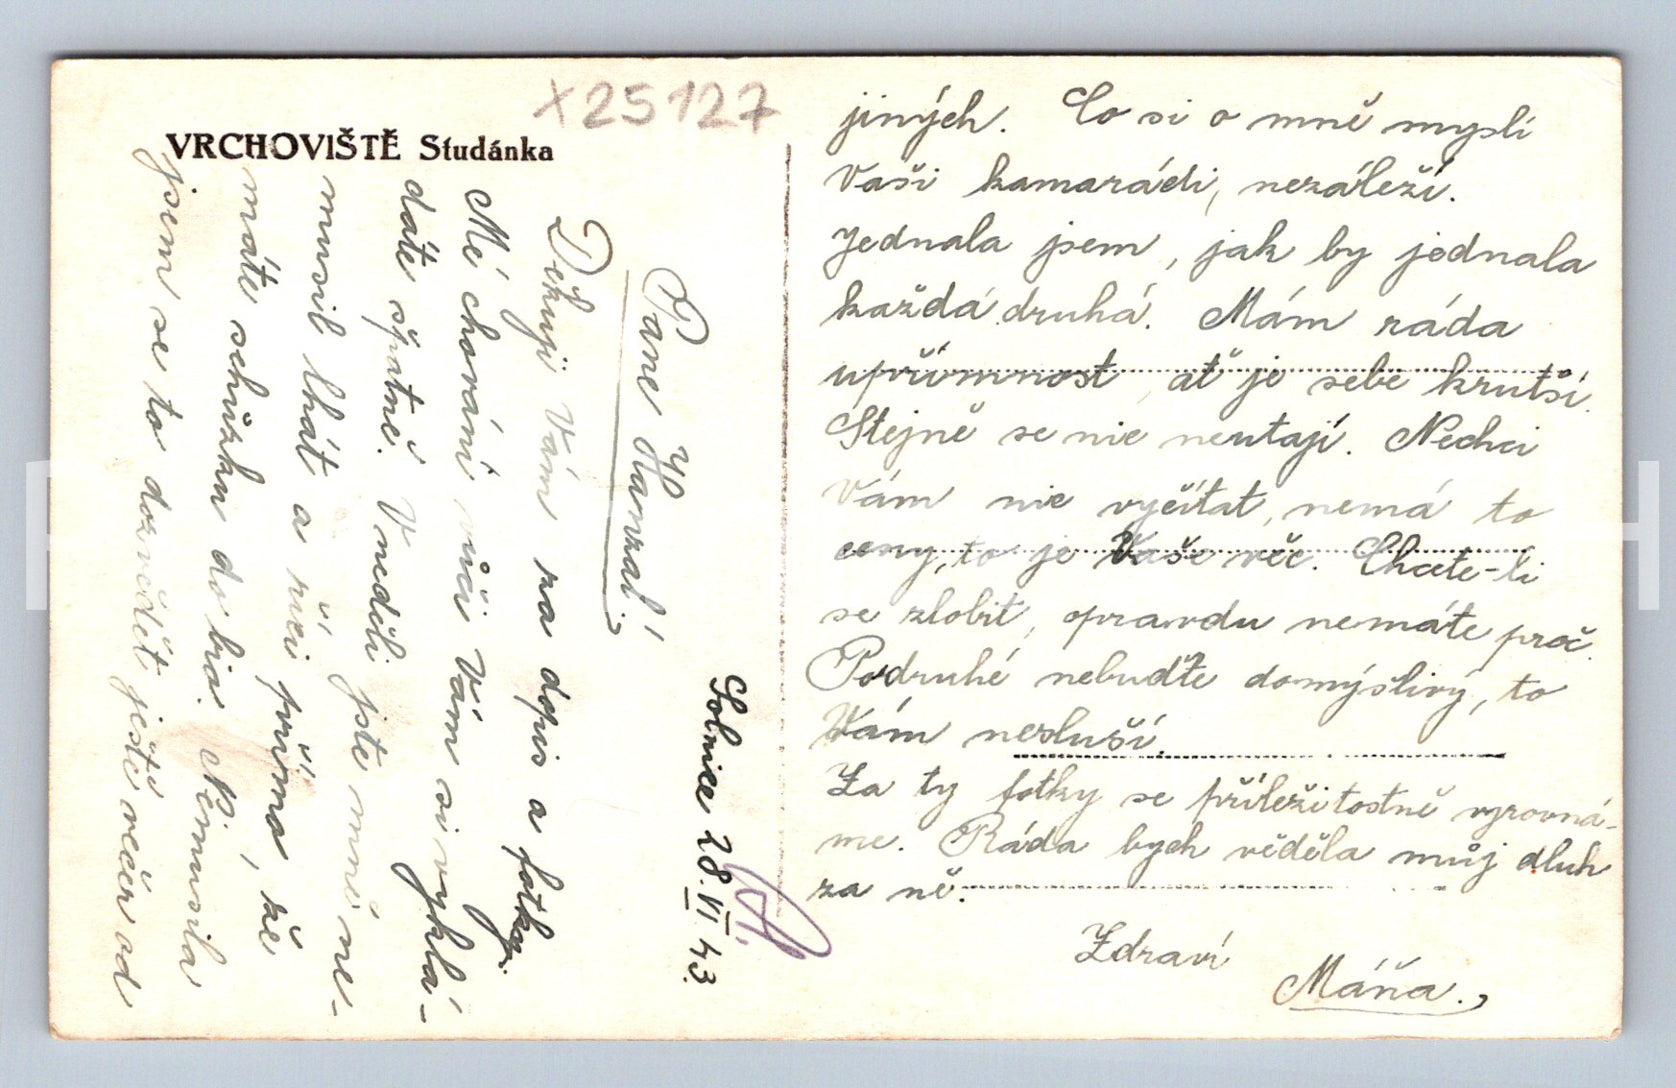 X25127
VRCHOVIŠTĚ Studánka
Solnice 28.VI.43.
Pane Hanzal!
Děkuji Vám za dopis a fotky.
Mé chování vůči Vám si vyklá-
dáte špatně. V neděli jste mně ne-
musil lhát a říci přímo, že
máte schůzku do bia. Nemusila
jsem se to dozvědět ještě večer od
jiných. Co si o mně myslí
Vaši kamarádi, nezáleží.
Jednala jsem, jak by jednala
každá druhá. Mám ráda
upřímnost, ať je sebe krutší.
Stejně se nic neutají. Nechci
Vám nic vyčítat, nemá to
ceny, to je Vaše věc. Chcete-li
se zlobit, opravdu nemáte proč.
Podruhé nebuďte domýšlivý, to
Vám nesluší.
Za ty fotky se příležitostně vyrovná-
me. Ráda bych věděla můj dluh
za ně.
Zdraví
Máňa.